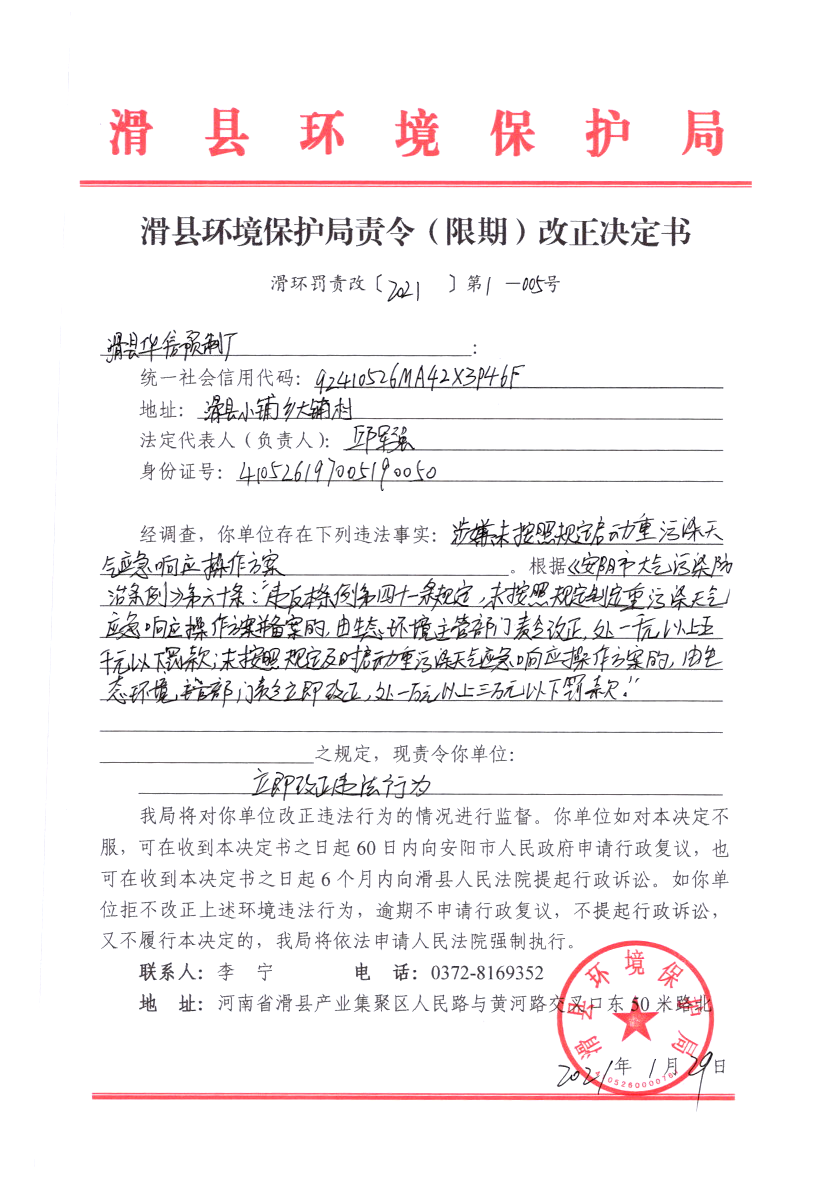 滑县环境保护局
滑县环境保护局责令（限期）改正决定书
滑环罚责改〔2021 〕第1-005号
滑县华信预制厂：
统一社会信用代码：92410526MA42X3P46F
地址：滑县小铺乡大铺村
法定代表人（负责人）：邱军强
身份证号：410526197005190050
经调查，你单位存在下列违法事实：涉嫌未按照规定启动重污染天
气应急响应操作方案。根据《安阳市大气污染防
治条例》第六十条："违反本条例第四十一条规定，未按照规定制定重污染天气
应急响应操作方案并备案的，由生态环境主管部门责令改正，处一千元以上五
千元以下罚款；未按照规定及时启动重污染天气应急响应操作方案的，由生
态环境主管部门责令立即改正，处一万元以上三万元以下罚款。"
之规定，现责令你单位：
立即改正违法行为
我局将对你单位改正违法行为的情况进行监督。你单位如对本决定不
服，可在收到本决定书之日起60日内向安阳市人民政府申请行政复议，也
可在收到本决定书之日起6个月内向滑县人民法院提起行政诉讼。如你单
位拒不改正上述环境违法行为，逾期不申请行政复议，不提起行政诉讼，
又不履行本决定的，我局将依法申请人民法院强制执行。
联系人：李 宁 电 话：0372-8169352
地 址：河南省滑县产业集聚区人民路与黄河路交叉口东50米路北
滑县环境保护局
2021年1月29日